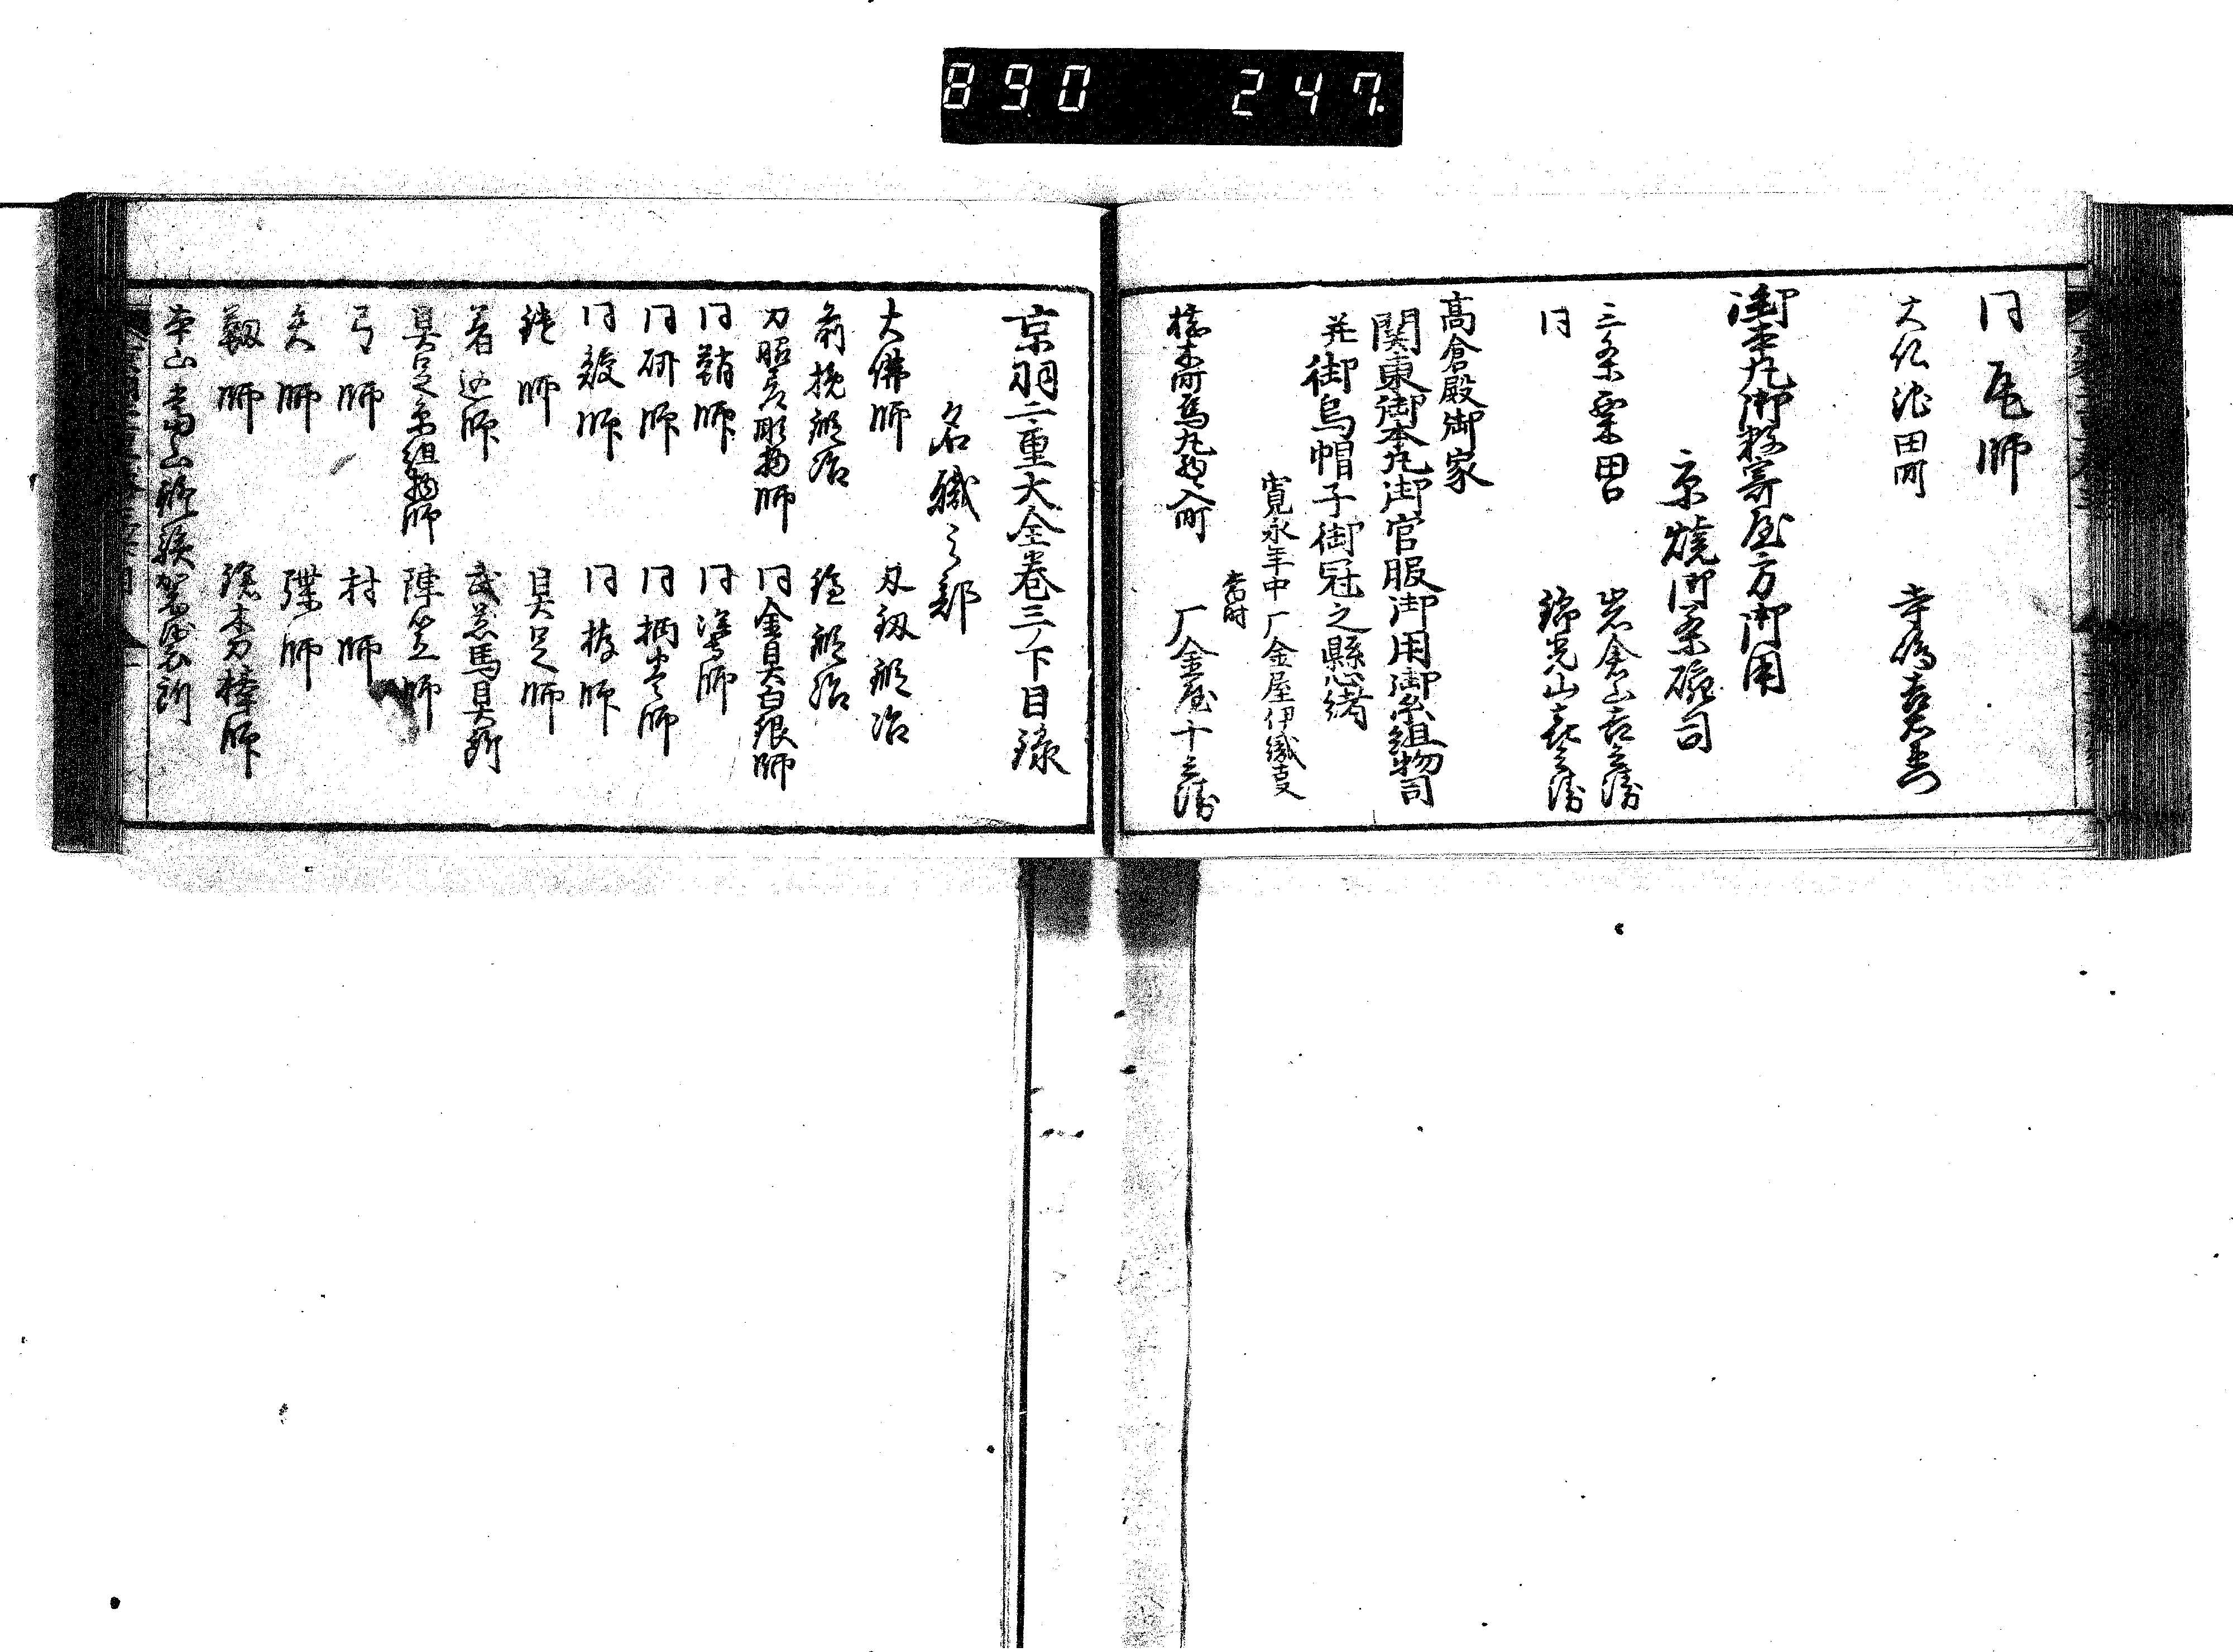 890 247
同瓦師
大仏池田町 寺嶋吉右衛門
御本丸御数寄屋方御用
京焼御茶碗司
三条粟田口 岩倉山吉兵衛
同 錦光山喜兵衛
高倉殿御家
関東御本丸御官服御用御糸組物司
并御烏帽子御冠之懸緒
寛永年中 金屋伊織支
当時
烏丸西入町 金屋十兵衛
京羽二重大全巻三ノ下目録
名職之部
大佛師 刃剱鍛冶
剪挽鍛冶 鎧鍛冶
刀脇差彫物師 同金具白銀師
同鞘師 同塗師
同研師 同柄巻師
同鮫師 同摺師
鏡師 具足師
着込師 武器馬具所
具足糸組物師 陣笠師
弓師 村師
矢師 弽師
靱師 鎗木刀棒師
本山当山修験装束所